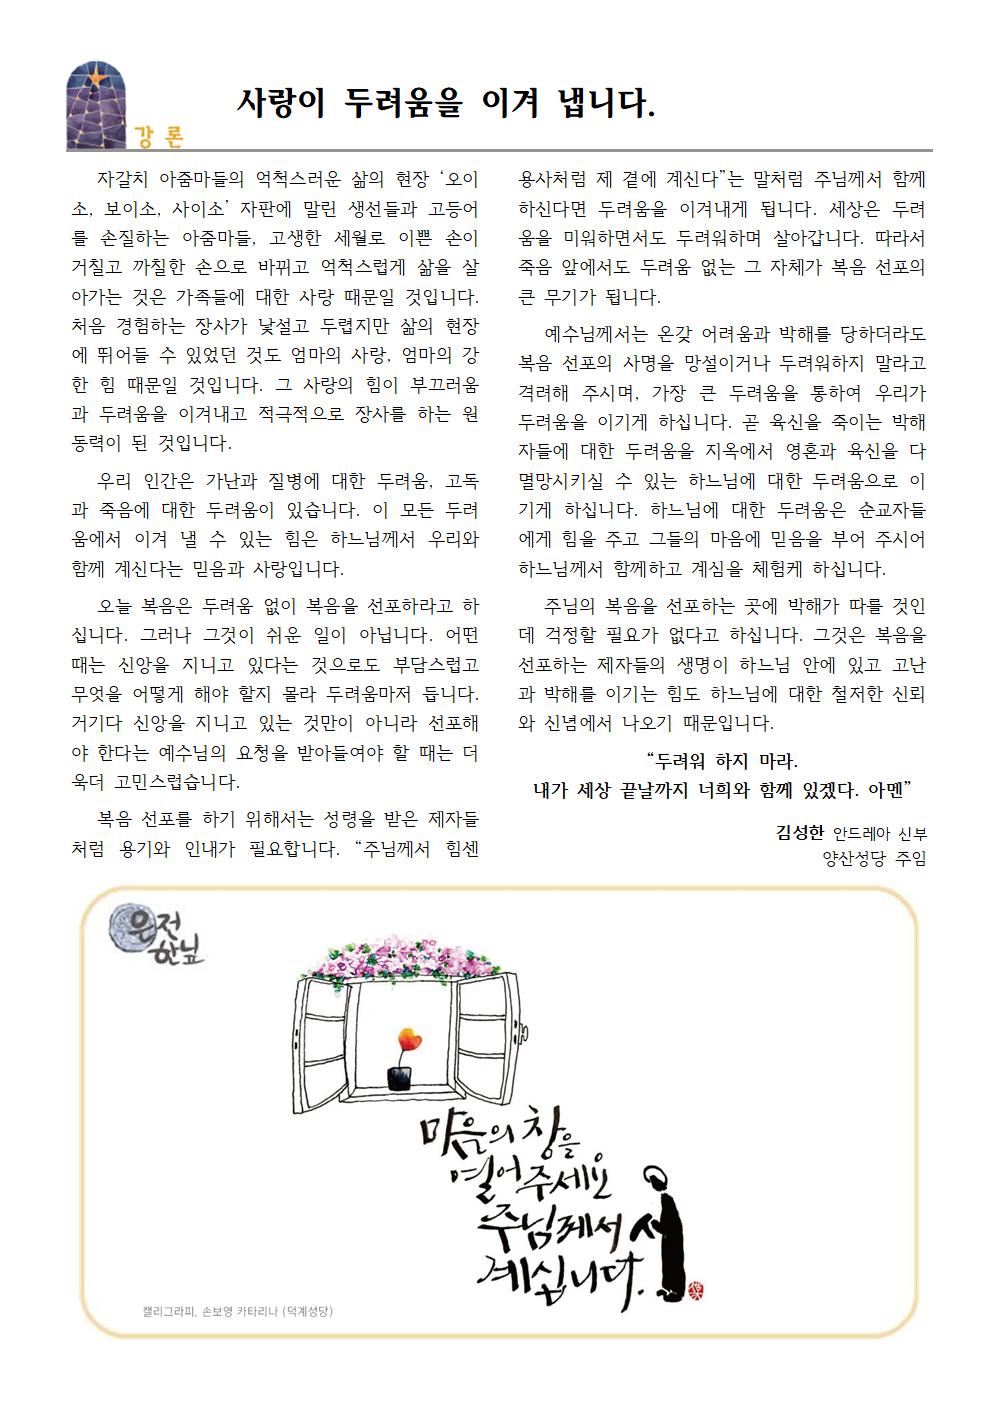 강 론
사랑이 두려움을 이겨 냅니다.
자갈치 아줌마들의 억척스러운 삶의 현장 ‘오이
소, 보이소, 사이소’ 자판에 말린 생선들과 고등어
를 손질하는 아줌마들, 고생한 세월로 이쁜 손이
거칠고 까칠한 손으로 바뀌고 억척스럽게 삶을 살
아가는 것은 가족들에 대한 사랑 때문일 것입니다.
처음 경험하는 장사가 낯설고 두렵지만 삶의 현장
에 뛰어들 수 있었던 것도 엄마의 사랑, 엄마의 강
한 힘 때문일 것입니다. 그 사랑의 힘이 부끄러움
과 두려움을 이겨내고 적극적으로 장사를 하는 원
동력이 된 것입니다.
우리 인간은 가난과 질병에 대한 두려움, 고독
과 죽음에 대한 두려움이 있습니다. 이 모든 두려
움에서 이겨 낼 수 있는 힘은 하느님께서 우리와
함께 계신다는 믿음과 사랑입니다.
오늘 복음은 두려움 없이 복음을 선포하라고 하
십니다. 그러나 그것이 쉬운 일이 아닙니다. 어떤
때는 신앙을 지니고 있다는 것으로도 부담스럽고
무엇을 어떻게 해야 할지 몰라 두려움마저 듭니다.
거기다 신앙을 지니고 있는 것만이 아니라 선포해
야 한다는 예수님의 요청을 받아들여야 할 때는 더
욱더 고민스럽습니다.
복음 선포를 하기 위해서는 성령을 받은 제자들
처럼 용기와 인내가 필요합니다. “주님께서 힘센
용사처럼 제 곁에 계신다”는 말처럼 주님께서 함께
하신다면 두려움을 이겨내게 됩니다. 세상은 두려
움을 미워하면서도 두려워하며 살아갑니다. 따라서
죽음 앞에서도 두려움 없는 그 자체가 복음 선포의
큰 무기가 됩니다.
예수님께서는 온갖 어려움과 박해를 당하더라도
복음 선포의 사명을 망설이거나 두려워하지 말라고
격려해 주시며, 가장 큰 두려움을 통하여 우리가
두려움을 이기게 하십니다. 곧 육신을 죽이는 박해
자들에 대한 두려움을 지옥에서 영혼과 육신을 다
멸망시키실 수 있는 하느님에 대한 두려움으로 이
기게 하십니다. 하느님에 대한 두려움은 순교자들
에게 힘을 주고 그들의 마음에 믿음을 부어 주시어
하느님께서 함께하고 계심을 체험케 하십니다.
주님의 복음을 선포하는 곳에 박해가 따를 것인
데 걱정할 필요가 없다고 하십니다. 그것은 복음을
선포하는 제자들의 생명이 하느님 안에 있고 고난
과 박해를 이기는 힘도 하느님에 대한 철저한 신뢰
와 신념에서 나오기 때문입니다.
“두려워 하지 마라.
내가 세상 끝날까지 너희와 함께 있겠다. 아멘”
김성한 안드레아 신부
양산성당 주임
은전
한닢
마음의 창을
열어 주세요
주님께서 서
계십니다.
캘리그라피. 손보영 카타리나 (덕계성당)